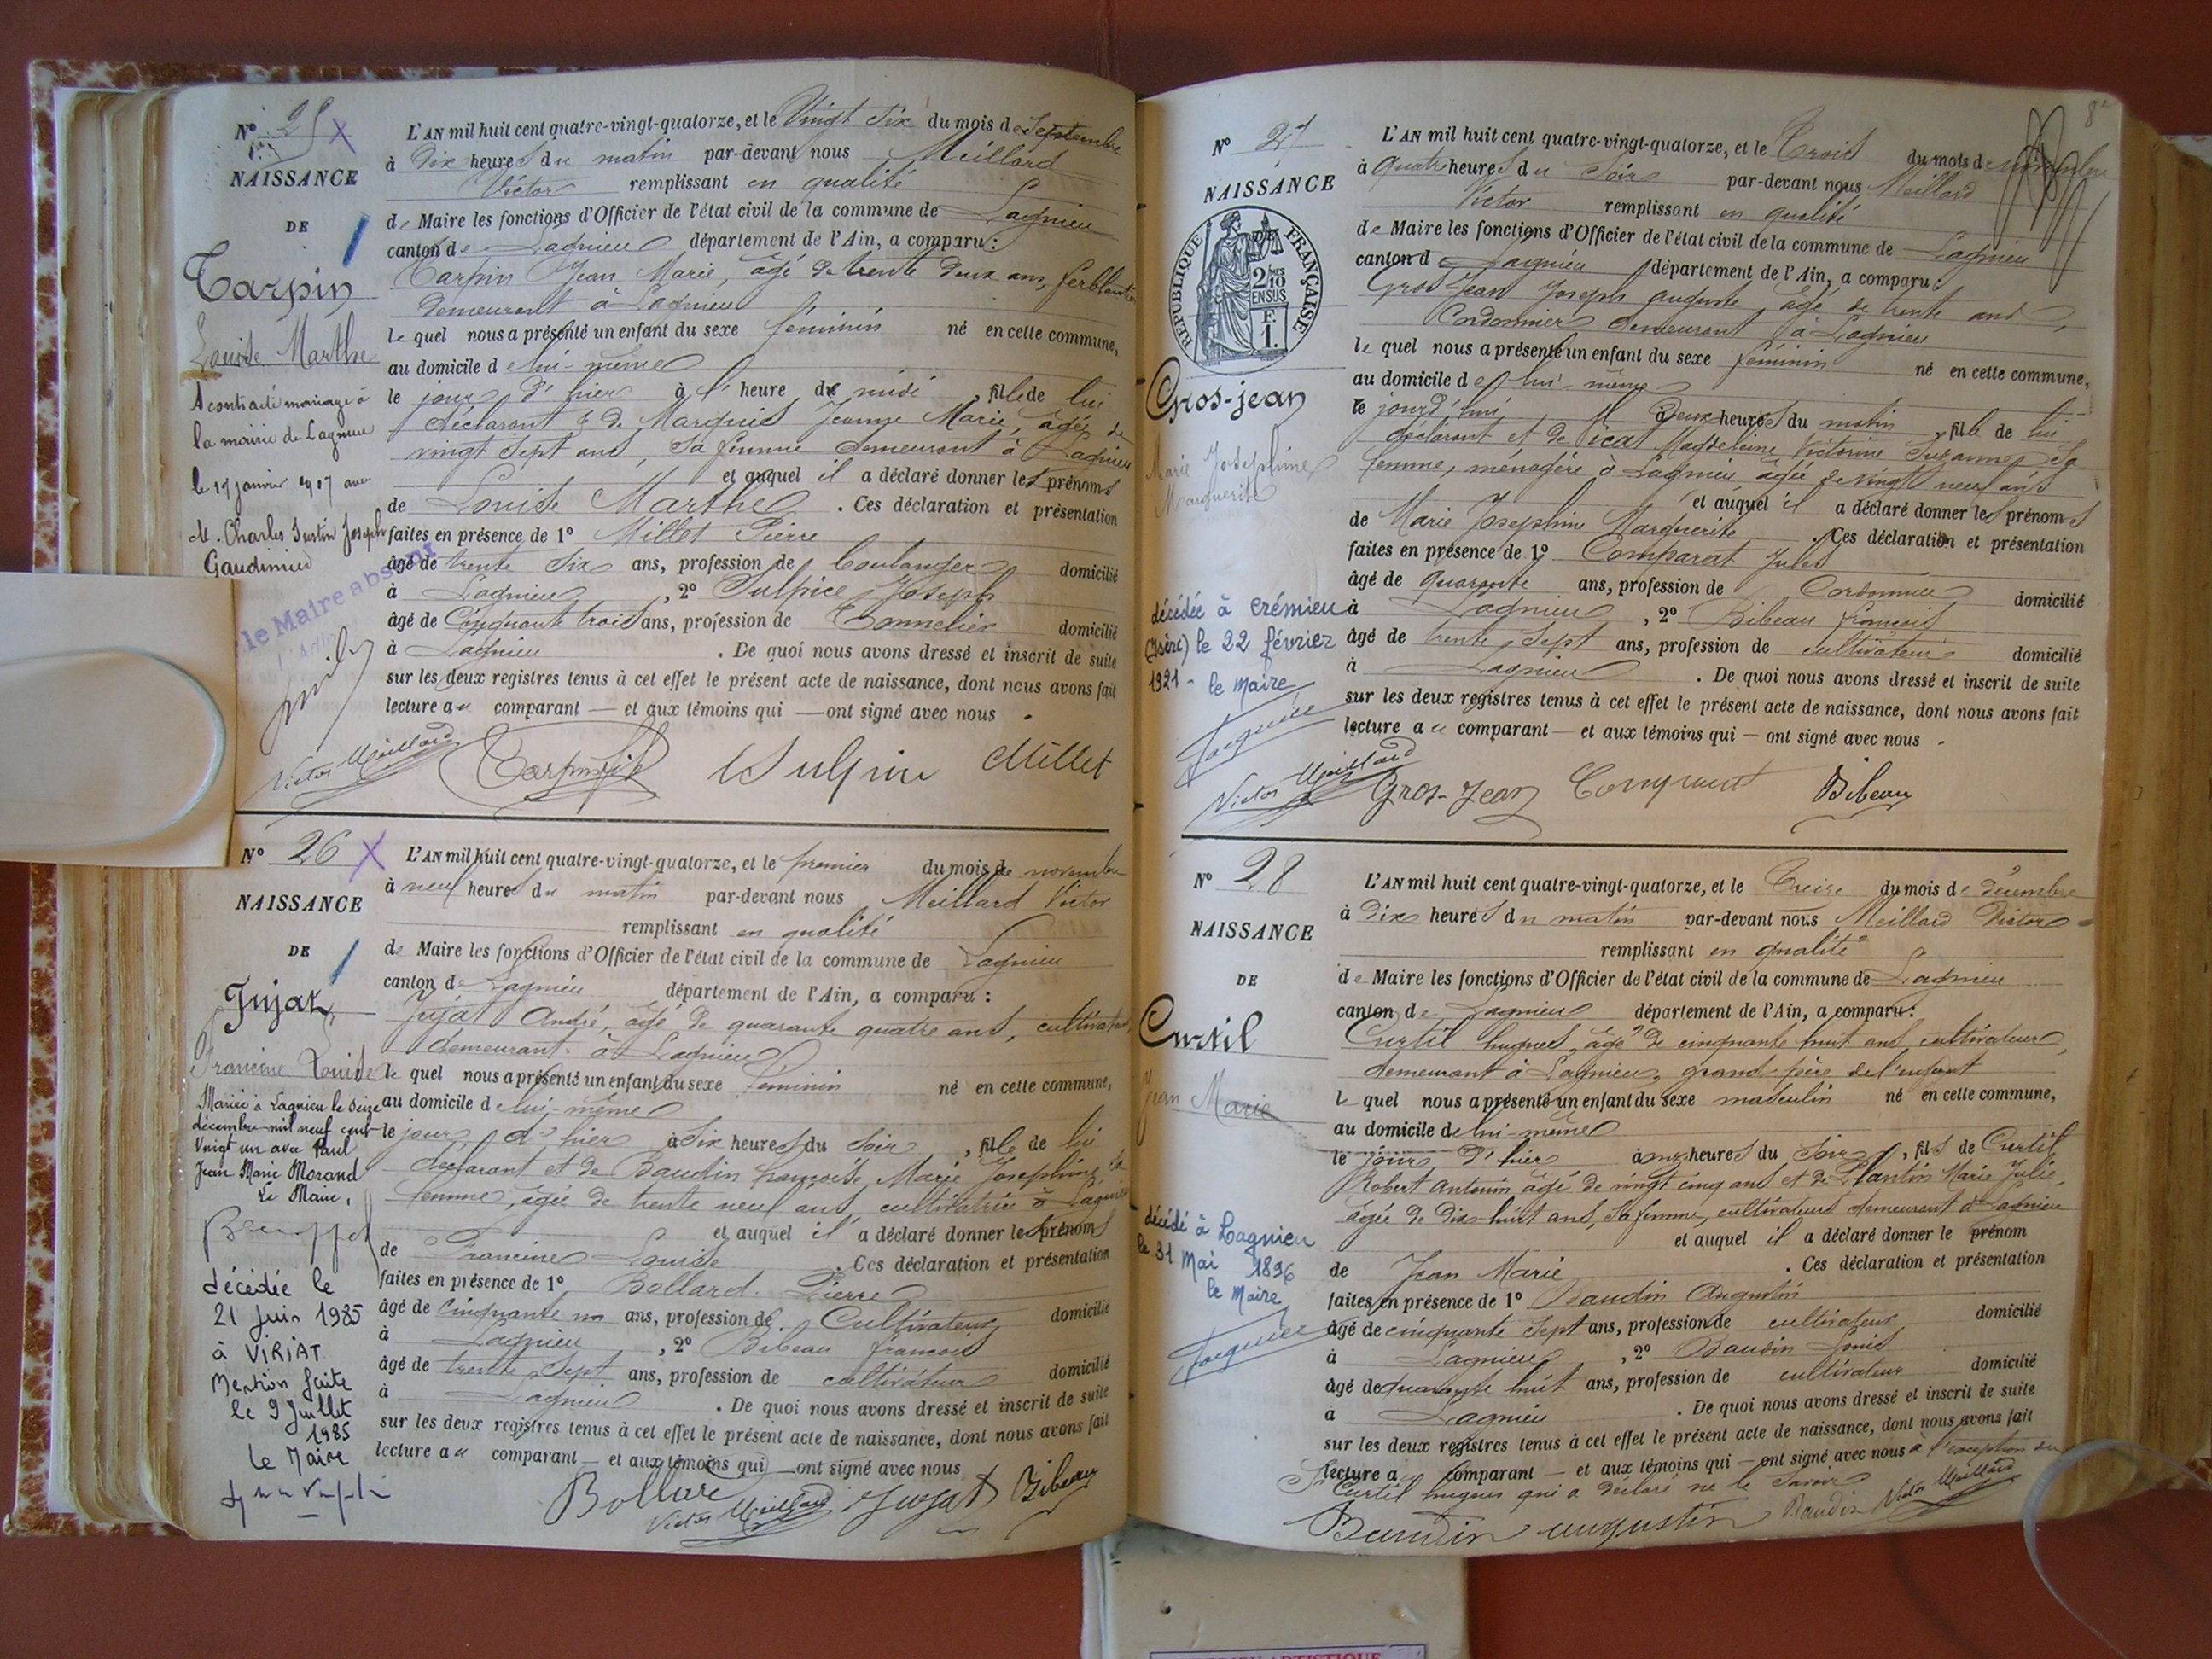 N° 25 X
NAISSANCE
DE
Tarpin
Louise Marthe
A contracté mariage à
la mairie de Lagnieu
le 19 janvier 1907 avec
M. Charles Justin Joseph
Gaudimier
le Maire absent
L'AN mil huit cent quatre-vingt-quatorze, et le Vingt Six du mois de Septembre
à Dix heures du matin par-devant nous Meillard
Victor remplissant en qualité
de Maire les fonctions d'Officier de l'état civil de la commune de Lagnieu
canton de Lagnieu département de l'Ain, a comparu :
Tarpin Jean Marie, âgé de trente deux ans, ferblantier
demeurant à Lagnieu
le quel nous a présenté un enfant du sexe féminin né en cette commune,
au domicile de lui-même
le jour d'hier à l'heure de midi , fille de lui
déclarant & de Marquis Jeanne Marie, âgée de
vingt sept ans, sa femme demeurant à Lagnieu
et auquel il a déclaré donner les prénoms
de Louise Marthe . Ces déclaration et présentation
faites en présence de 1° Millet Pierre
âgé de trente six ans, profession de boulanger domicilié
à Lagnieu , 2° Sulpice Joseph
âgé de Cinquante trois ans, profession de Tonnelier domicilié
à Lagnieu . De quoi nous avons dressé et inscrit de suite
sur les deux registres tenus à cet effet le présent acte de naissance, dont nous avons fait
lecture au comparant — et aux témoins qui — ont signé avec nous .
Victor Meillard Tarpin Sulpice Millet
N° 26 X
NAISSANCE
DE
Jujat
Francine Louise
Mariée à Lagnieu le seize
décembre mil neuf cent
vingt un avec Paul
Jean Marie Morand
Le Maire,
décédée le
21 Juin 1985
à VIRIAT
Mention faite
le 9 Juillet
1985
le Maire
L'AN mil huit cent quatre-vingt-quatorze, et le premier du mois de novembre
à neuf heures du matin par-devant nous Meillard Victor
remplissant en qualité
de Maire les fonctions d'Officier de l'état civil de la commune de Lagnieu
canton de Lagnieu département de l'Ain, a comparu :
Jujat André, âgé de quarante quatre ans, cultivateur
demeurant à Lagnieu
le quel nous a présenté un enfant du sexe féminin né en cette commune,
au domicile de lui-même
le jour d'hier à six heures du soir , fille de lui
déclarant et de Baudin françoise, Marie Joséphine sa
femme, âgée de trente neuf ans, cultivatrice à Lagnieu
et auquel il a déclaré donner les prénoms
de Francine Louise . Ces déclaration et présentation
faites en présence de 1° Bollard Pierre
âgé de cinquante un ans, profession de Cultivateur domicilié
à Lagnieu , 2° Bibeau françois
âgé de trente sept ans, profession de cultivateur domicilié
à Lagnieu . De quoi nous avons dressé et inscrit de suite
sur les deux registres tenus à cet effet le présent acte de naissance, dont nous avons fait
lecture au comparant — et aux témoins qui — ont signé avec nous
Bollard Victor Meillard Jujat Bibeau
8
N° 27
NAISSANCE
RÉPUBLIQUE FRANÇAISE
2/10 EN SUS
F.
1.
Gros-jean
Marie Joséphine
Marguerite
décédée à Crémieu
(Isère) le 22 février
1921 - le Maire
L'AN mil huit cent quatre-vingt-quatorze, et le Trois du mois de novembre
à quatre heures du soir par-devant nous Meillard
Victor remplissant en qualité
de Maire les fonctions d'Officier de l'état civil de la commune de Lagnieu
canton de Lagnieu département de l'Ain, a comparu :
Gros-Jean Joseph auguste âgé de trente ans,
Cordonnier demeurant à Lagnieu
le quel nous a présenté un enfant du sexe féminin né en cette commune,
au domicile de lui-même
le jourd'hui à Deux heures du matin , fille de lui
déclarant et de Magdeleine Victorine Suzanne sa
femme, ménagère à Lagnieu âgée de vingt neuf ans
et auquel il a déclaré donner les prénoms
de Marie Joséphine Marguerite . Ces déclaration et présentation
faites en présence de 1° Comparat Jules
âgé de quarante ans, profession de Cordonnier domicilié
à Lagnieu , 2° Bibeau françois
âgé de trente sept ans, profession de cultivateur domicilié
à Lagnieu . De quoi nous avons dressé et inscrit de suite
sur les deux registres tenus à cet effet le présent acte de naissance, dont nous avons fait
lecture au comparant — et aux témoins qui — ont signé avec nous .
Victor Meillard Gros-Jean Comparat Bibeau
N° 28
NAISSANCE
DE
Curtil
Jean Marie
décédé à Lagnieu
le 31 Mai 1896
le Maire
L'AN mil huit cent quatre-vingt-quatorze, et le Treize du mois de décembre
à Dix heures du matin par-devant nous Meillard Victor
remplissant en qualité
de Maire les fonctions d'Officier de l'état civil de la commune de Lagnieu
canton de Lagnieu département de l'Ain, a comparu :
Curtil hugues, âgé de cinquante huit ans, cultivateur,
demeurant à Lagnieu, grand père de l'enfant
le quel nous a présenté un enfant du sexe masculin né en cette commune,
au domicile de lui-même
le jour d'hier à onze heures du soir , fils de Curtil
Robert Antonin âgé de vingt cinq ans et de Plantin Marie Julie,
âgée de dix-huit ans, sa femme, cultivateurs demeurant à Lagnieu
et auquel il a déclaré donner le prénom
de Jean Marie . Ces déclaration et présentation
faites en présence de 1° Baudin Augustin
âgé de cinquante sept ans, profession de cultivateur domicilié
à Lagnieu , 2° Baudin Louis
âgé de quarante huit ans, profession de cultivateur domicilié
à Lagnieu . De quoi nous avons dressé et inscrit de suite
sur les deux registres tenus à cet effet le présent acte de naissance, dont nous avons fait
lecture au comparant — et aux témoins qui — ont signé avec nous à l'exception du
Sr Curtil hugues qui a déclaré ne le savoir
Baudin augustin Baudin Victor Meillard